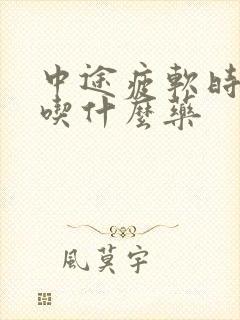 中途疲軟時
喫什麼藥
風莫宇